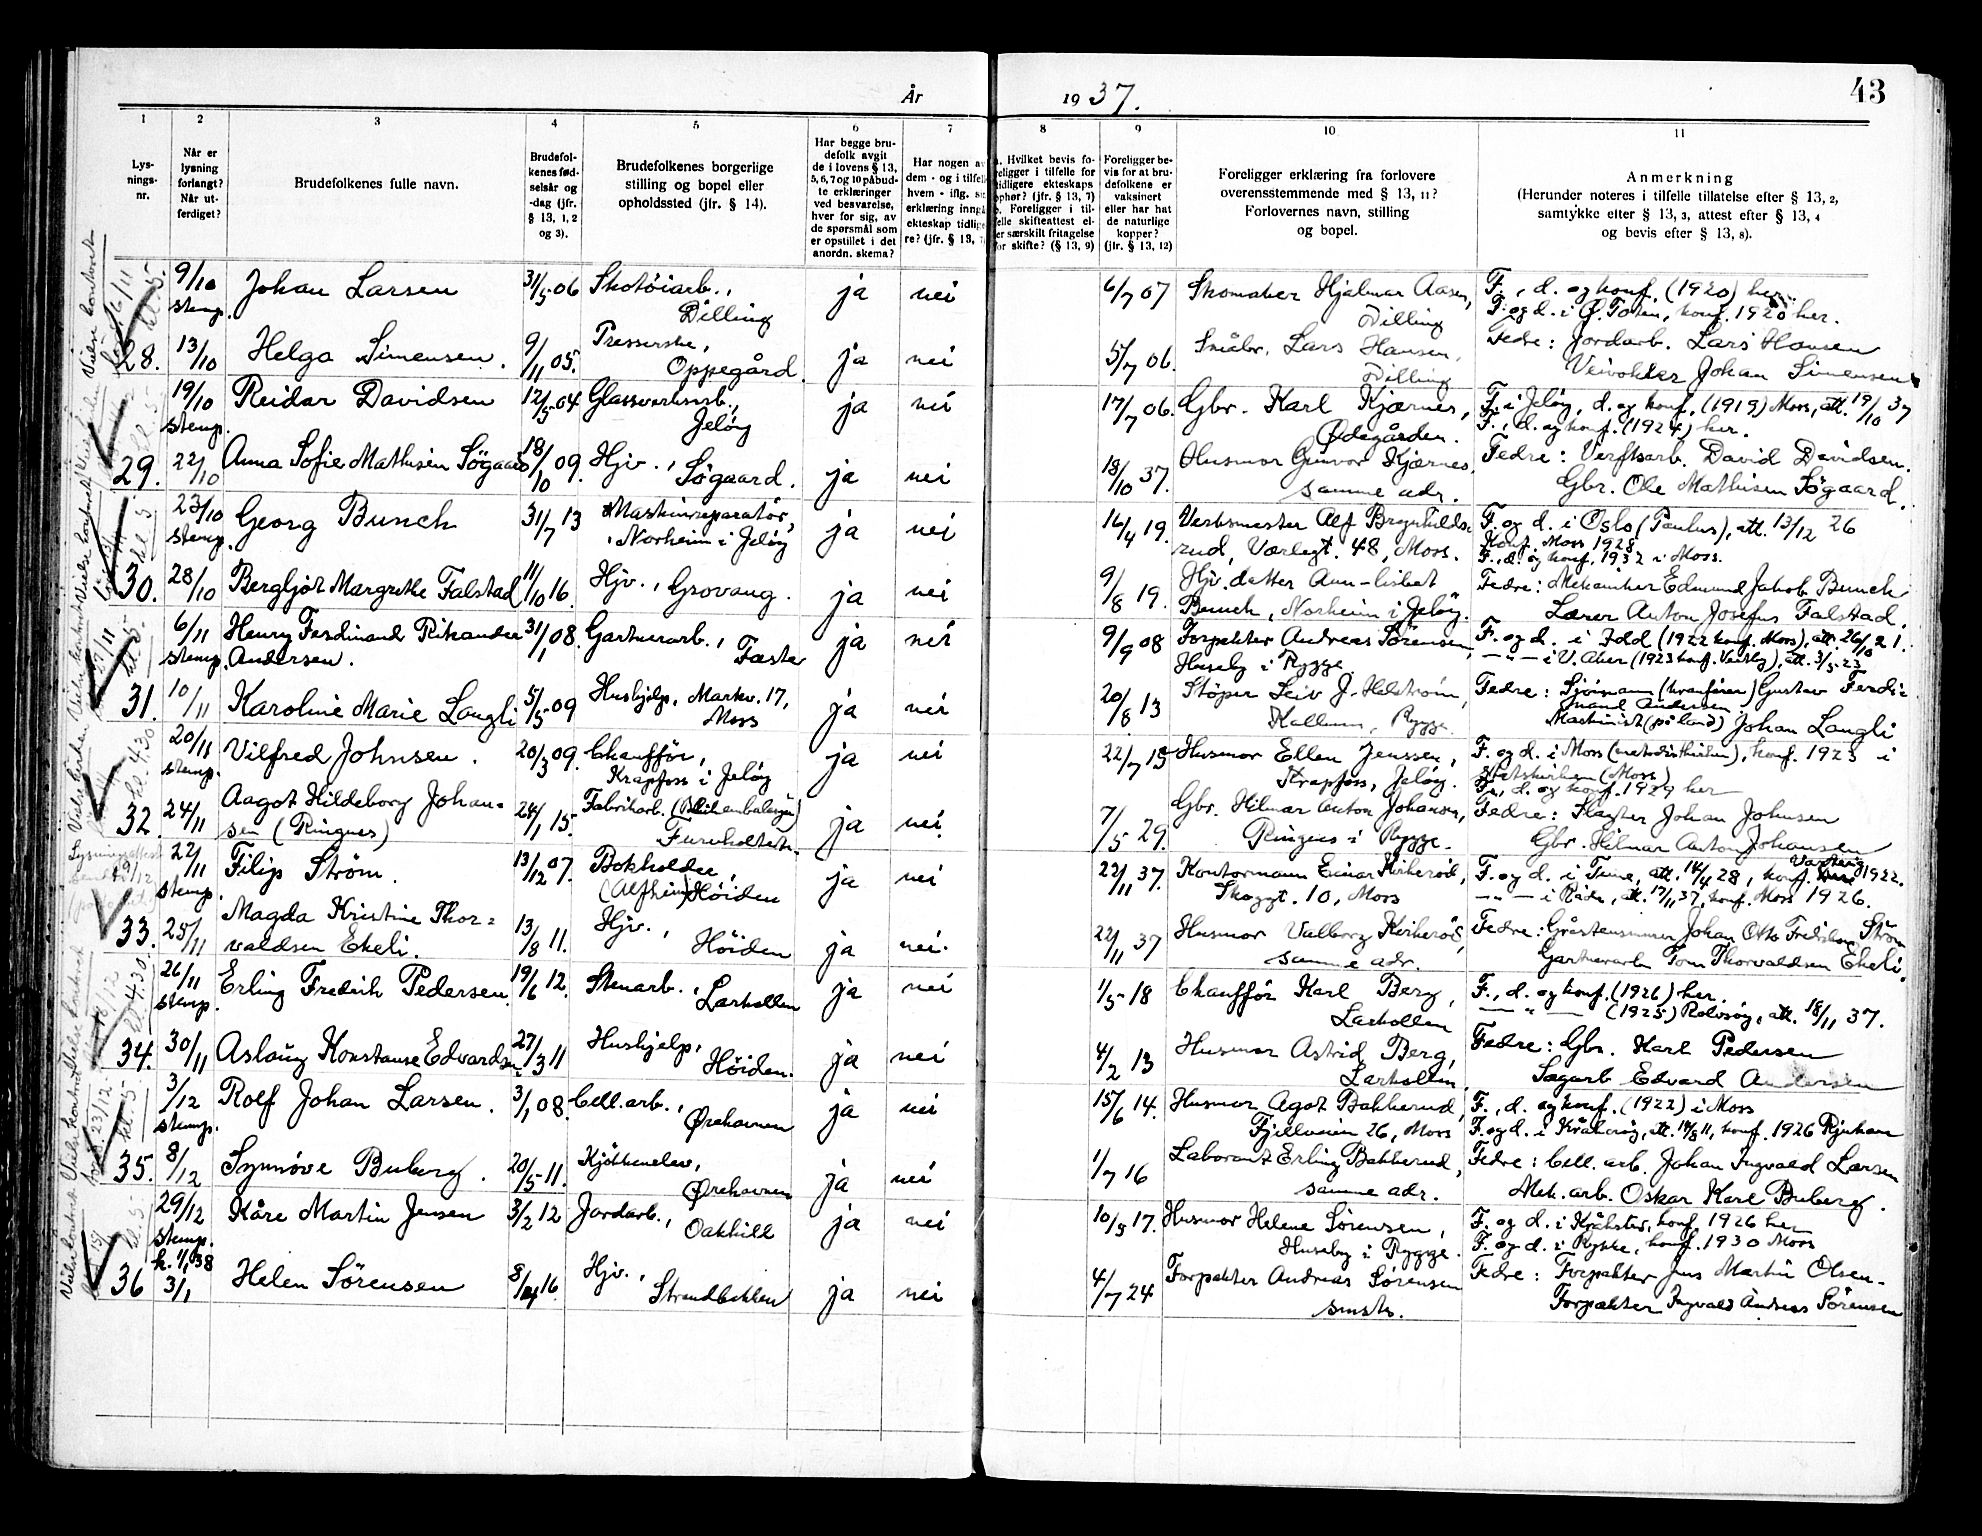 43
År 1937.
1 2 3 4 5 6 7 8 9 10 11
Lys-
nings-
nr.
Når er
lysning
forlangt?
Når ut-
ferdiget?
Brudefolkenes fulle navn.
Brudefol-
kenes fød-
selsår og
-dag (jfr.
§ 13, 1, 2
og 3).
Brudefolkenes borgerlige
stilling og bopel eller
opholdssted (jfr. § 14).
Har begge bru-
defolk avgit
de i lovens § 13,
5, 6, 7 og 10 påbud-
te erklæringer
ved besvarelse,
hver for sig, av
de spørsmål som
er opstillet i det
anordn. skema?
Har nogen av
dem - og i tilfelle
hvem - iflg. sin
erklæring inngått
ekteskap tidlige-
re? (jfr. § 13,
a. Hvilket bevis fo-
religger i tilfelle for
tidligere ekteskaps
ophør? (jfr. § 13, 7)
b. Foreligger i til-
felle skifteattest el-
ler særskilt fritagelse
for skifte? (§ 13, 9)
Foreligger be-
vis for at bru-
defolkene er
vaksinert
eller har hat
de naturlige
kopper?
(jfr. § 13, 12)
Foreligger erklæring fra forlovere
overensstemmende med § 13, 11?
Forlovernes navn, stilling
og bopel.
Anmerkning
(Herunder noteres i tilfelle tillatelse efter § 13, 2,
samtykke efter § 13, 3, attest efter § 13, 4
og bevis efter § 13, 8).
9/10 Johan Larsen 31/5 06 Skotøiarb., ja nei 6/7 07 Skomaker Hjalmar Aasen, F., d. og konf. (1920) her.
stemp. Dilling Dilling F. og d. i Ø. Toten, konf. 1920 her.
28. 13/10 Helga Simensen. 9/11 05. Presserske, ja nei 5/7 06. Småbr. Lars Hansen, Fedre: Jordarb. Lars Hansen
Oppegård. Dilling Veivokter Johan Simensen
19/10 Reidar Davidsen 12/5 04 Glassverksarb., ja nei 17/7 06. Gbr. Karl Kjærnes, F. i Jeløy, d. og konf. (1919) Moss, att. 19/10 37
stemp. Jeløy Ødegården. F., d. og konf. (1924) her.
29. 22/10 Anna Sofie Mathisen Søgaard 18/10 09. Hjv., Søgaard. ja nei 18/10 37. Husmor Gunvor Kjærnes, Fedre: Verftsarb. David Davidsen.
samme adr. Gbr. Ole Mathisen Søgaard.
23/10 Georg Bunch 31/7 13 Maskinreparatør, ja nei 16/4 19. Verksmester Alf Brynhilds- F. og d. i Oslo (Paulus), att. 13/12 26
stemp. Norheim i Jeløy rud, Værlegt. 48, Moss. Konf. Moss 1928
F., d. og konf. 1932 i Moss.
30. 28/10 Bergljot Margrethe Falstad 11/10 16. Hjv., Grovang. ja nei 9/8 19. Hjv. datter Ann-Lisbet Fedre: Mekaniker Edmund Jakob Bunch
Bunch, Norheim i Jeløy. Lærer Anton Josefus Falstad.
6/11 Henry Ferdinand Rikander 31/1 08. Gartnerarb., ja nei 9/9 08 Forpakter Andreas Sørensen, F. og d. i Idd (1922 konf. Moss), att. 26/10 21.
stemp. Andersen. Faste Huseby i Rygge — " — i V. Aker (1923 konf. Vestby), att. 3/5 23
31. 10/11 Karoline Marie Langli 5/5 09 Hushjelp, Markv. 17, ja nei 20/8 13 Støper Leiv J. Helstrøm, Fedre: Sjømann (kranfører) Gustav Ferdi-
Moss Hallum, Rygge. nand Andersen
Maskinist (på land) Johan Langli
20/11 Vilfred Johnsen. 20/3 09. Chauffør, ja nei 22/7 15 Husmor Ellen Jenssen, F. og d. i Moss (metodistkirken), konf. 1923 i
stemp. Krapfoss i Jeløy Krapfoss, Jeløy. statskirken (Moss)
F., d. og konf. 1929 her
32. 24/11 Aagot Hildeborg Johan- 24/1 15. Fabrikarb. ja nei. 7/5 29. Gbr. Hilmar Anton Johansen, Fedre: Slagter Johan Johnsen
sen (Ringnes) Ringnes i Rygge. Gbr. Hilmar Anton Johansen
22/11 Filip Strøm. 13/12 07. Bokholder, ja nei 22/11 37. Kontormann Einar Kirkerød, F. og d. i Tune, att. 14/4 28, konf. Varteig 1922.
stemp. (Alfheim) Høiden Skoggt. 10, Moss — " — i Råde, att. 17/11 37, konf. Moss 1926.
33. 25/11 Magda Kristine Thor- 13/8 11. Hjv., Høiden ja nei. 22/11 37 Husmor Valborg Kirkerød, Fedre: Gråstensmurer Johan Otto Fredriksen Strøm
valdsen Ekeli. samme adr. Gartnerarb. Tom Thorvaldsen Ekeli.
26/11 Erling Fredrik Pedersen. 19/6 12. Stenarb., ja nei 1/5 18 Chauffør Karl Berg, F., d. og konf. (1926) her.
stemp. Larkollen Larkollen — " — (1925) Rolvsøy, att. 18/11 37.
34. 30/11 Aslaug Konstanse Edvardsen 27/3 11 Hushjelp, Høiden. ja nei 4/2 13 Husmor Astrid Berg, Fedre: Gbr. Karl Pedersen
Larkollen. Sagarb Edvard Andersen
3/12 Rolf Johan Larsen. 3/1 08. Cell.arb., ja nei 15/6 14. Husmor Agot Bakkerud, F., d. og konf. (1922) i Moss
stemp. Ørehavnen Fjellveien 26, Moss F. og d. i Kråkerøy, att. 14/8 11, konf. 1926 Rjukan
35. 8/12 Synnøve Buberg. 20/5 11. Kjøkkenelev, ja nei 1/7 16 Laborant Erling Bakkerud, Fedre: Cell. arb. Johan Ingvald Larsen
Ørehavnen samme adr. Mek. arb. Oskar Karl Buberg.
29/12 Kåre Martin Jensen 3/2 12 Jordarb., ja nei 10/5 17. Husmor Helene Sørensen, F. og d. i Kråkstad, konf. 1926 her
stemp. Oakhill Huseby i Rygge. F. og d. i Rykke, konf. 1930 Moss
k. 1/1 38
36 3/1 Helen Sørensen 8/4 16. Hjv., Strandbakken ja nei 4/7 24 Forpakter Andreas Sørensen Fedre: Forpakter Jens Martin Olsen-
smsts. Forpakter Ingvald Andreas Sørensen